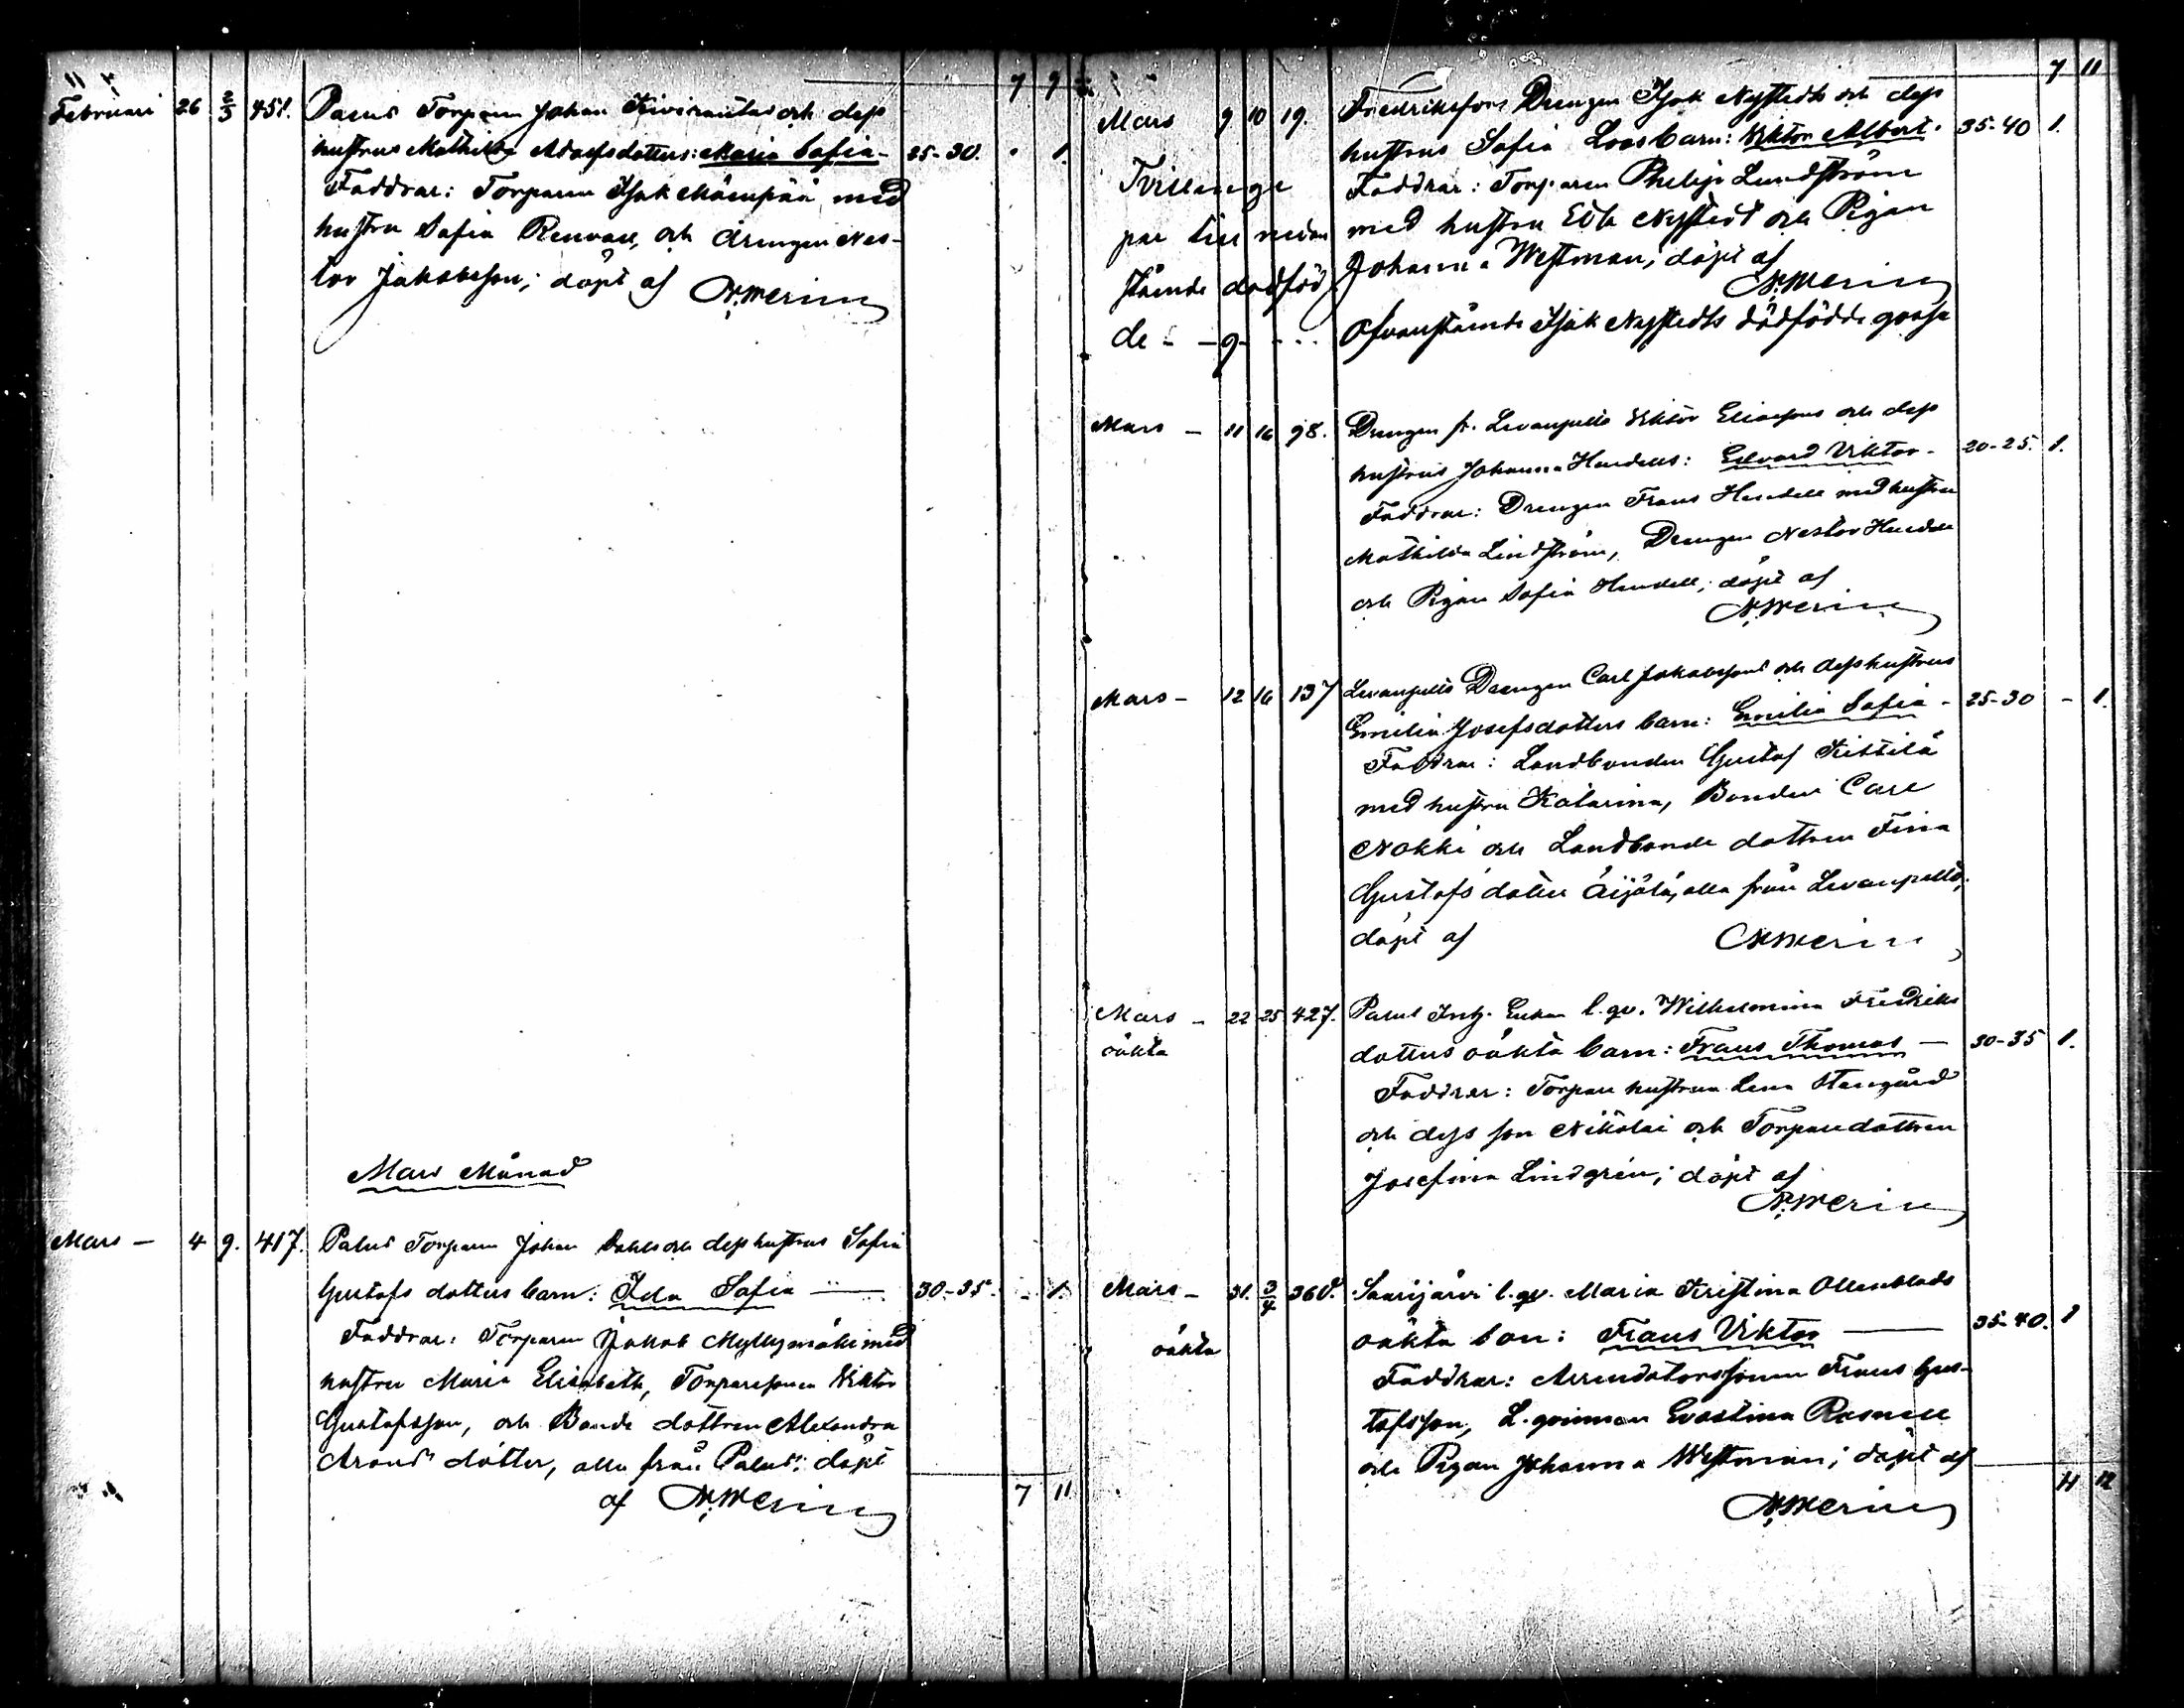 7 9
Februari 26 2/3 451. Palus Torparen Johan Kivirantas och dess
hustrus Mathilda Adolfsdotters: Maria Sofia - 25-30. - 1.
Faddrar: Torparen Isak Mäenpää med
hustru Sofia Renvall, och drengen Nes-
tor Jakobsson; döpt af N. Merin
Mars Månad
Mars - 4 9. 417. Palus Torparen Johan Dahls och dess hustrus Sofia
Gustafs dotters barn: Ida Sofia — 30-35. - 1.
Faddrar: Torparen Jakob Myllymäki med
hustru Maria Elisabeth, Torparesonen Viktor
Gustafsson, och Bonde dottren Alexandra
Arons dotter, alla från Palus; döpt
af N. Merin
7 11
7 11
Mars 9 10 19. Fredriksfors Drengen Isak Nystedts och dess
hustrus Sofia Loos barn: Viktor Albert. 35-40 1.
Tvillinge Faddrar: Torparen Philip Lundström
par till nedan med hustru Edla Nystedt och Pigan
Johanna Westman; döpt af
stående dödföd N. Merin
de - - 9 - Ofvanstående Isak Nystedts dödfödde gosse
Mars - 11 16 98. Drengen fr. Levanpelto Viktor Eliassons och dess
hustrus Johanna Hendells: Edvard Viktor - 20-25. 1.
Faddrar: Drengen Frans Hendell med hustru
Mathilda Lindström, Drengen Nestor Hendell
och Pigan Sofia Hendell; döpt af
N. Merin
Mars - 12 16 137 Levanpelto Drengen Carl Jakobssons och dess hustrus
Emilia Josefsdotters barn: Emilia Sofia - 25-30 - 1.
Faddrar: Landbonden Gustaf Kittilä
med hustru Katarina, Bonden Carl
Nokki och Landbonde dottren Fina
Gustafs dotter Äijälä, alla från Levanpelto;
döpt af N. Merin
Mars - 22 25 427. Palus Inh. Enkan l. qv. Wilhelmina Fredriks
oäkta dotters oäkta barn: Frans Thomas — 30-35 1.
Faddrar: Torpare hustrun Lena Stengård
och dess son Nikolai och Torparedottren
Josefina Lindgrén; döpt af
N. Merin
Mars - 31. 3/4 360. Saarijärvi l. qv. Maria Kristina Ollenblads
oäkta oäkta son: Frans Viktor — 35-40. 1
Faddrar: Arrendatorssonen Frans Gus-
tafsson, L. qvinnan Evastina Rosnell
och Pigan Johanna Westman; döpt af
N. Merin
11 12